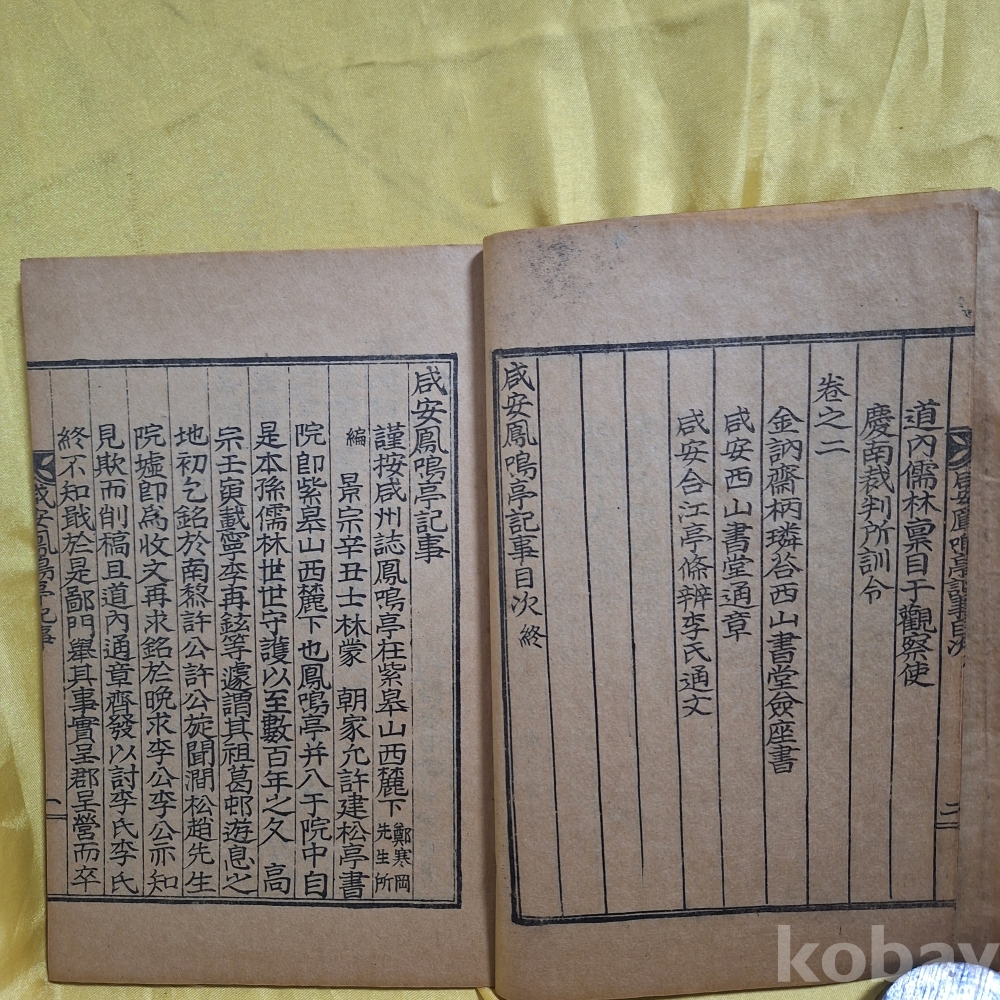 道內儒林稟目于觀察使
慶南裁判所訓令
卷之二
金訥齋柄璘答西山書堂僉座書
咸安西山書堂通章
咸安合江亭條辨李氏通文
咸安鳳鳴亭記事目次 終
咸安鳳鳴亭記事
謹按咸州誌鳳鳴亭在紫皋山西麓下 鄭寒岡先生所
編 景宗辛丑士林蒙 朝家允許建松亭書
院卽紫皋山西麓下也鳳鳴亭并入于院中自
是本孫儒林世世守護以至數百年之久 高
宗壬寅載寧李再鉉等濾謂其祖葛邨遊息之
地初乞銘於南黎許公許公旋聞澗松趙先生
院墟卽爲收文再求銘於晩求李公李公亦知
見欺而削槁且道內通章齊發以討李氏李氏
終不知戢於是鄙門擧其事實呈郡呈營而卒
咸安鳳鳴亭記事
一
咸安鳳鳴亭記事目次
二
kobay